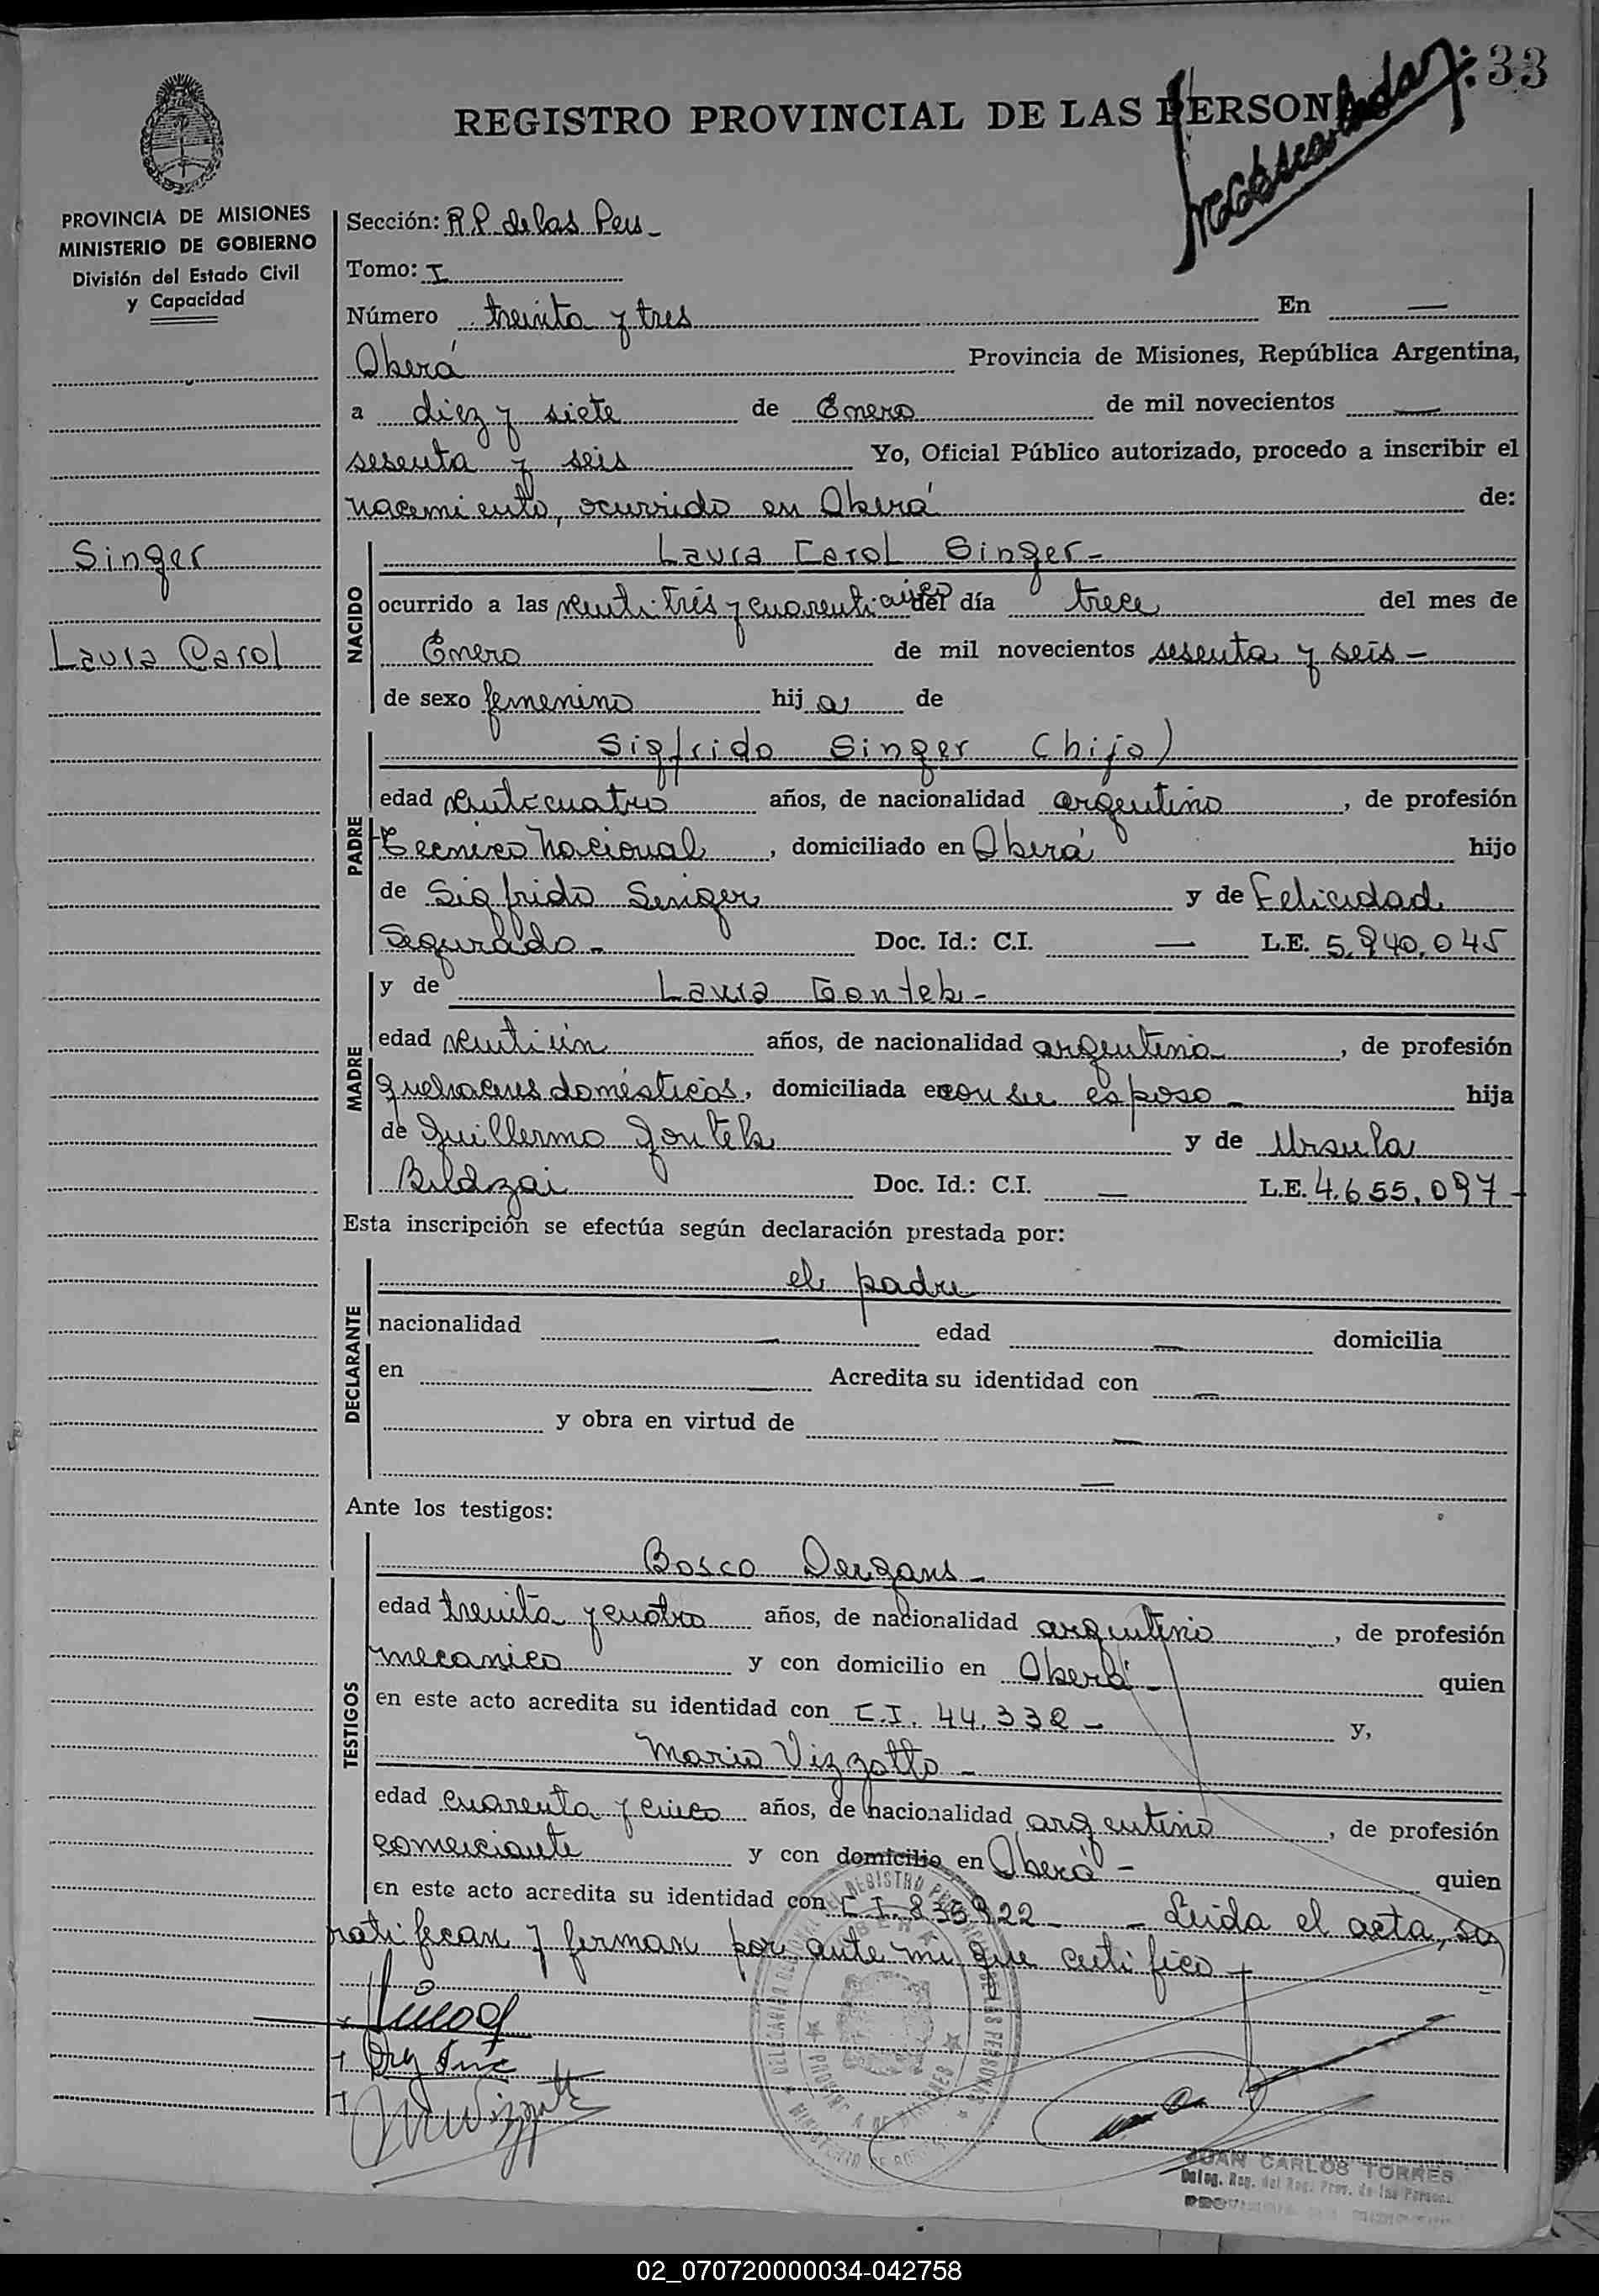 33
REGISTRO PROVINCIAL DE LAS PERSON
PROVINCIA DE MISIONES
MINISTERIO DE GOBIERNO
División del Estado Civil
y Capacidad
Sección: R.P. de las Pers -
Tomo: I
Número treinta y tres En —
Oberá Provincia de Misiones, República Argentina,
a diez y siete de Enero de mil novecientos —
sesenta y seis Yo, Oficial Público autorizado, procedo a inscribir el
nacimiento, ocurrido en Oberá de:
Singer
Laura Carol
NACIDO
Laura Carol Singer -
ocurrido a las veintitrés y cuarenticinco del día trece del mes de
Enero de mil novecientos sesenta y seis -
de sexo femenino hija de
PADRE
Sigfrido Singer (hijo)
edad veinticuatro años, de nacionalidad argentino, de profesión
Tecnico Nacional, domiciliado en Oberá hijo
de Sigfrido Singer y de Felicidad
Segurado - Doc. Id.: C.I. — L.E. 5.940.045
MADRE
y de Laura Gontek -
edad veintiún años, de nacionalidad argentina, de profesión
quehaceres domésticos, domiciliada en con su esposo - hija
de Guillermo Gontek y de Ursula
Doc. Id.: C.I. — L.E. 4.655.097 -
Esta inscripción se efectúa según declaración prestada por:
DECLARANTE
el padre
nacionalidad — edad — domicilia
en — Acredita su identidad con —
y obra en virtud de —
—
Ante los testigos:
TESTIGOS
Bosco Dergans -
edad treinta y cuatro años, de nacionalidad argentino, de profesión
mecanico y con domicilio en Oberá - quien
en este acto acredita su identidad con C.I. 44.332 - y,
Mario Vizzotto -
edad cuarenta y cinco años, de nacionalidad argentino, de profesión
comerciante y con domicilio en Oberá - quien
en este acto acredita su identidad con C.I. 835922 - - Leida el acta, se
ratifican y firman por ante mi que certifico -
JUAN CARLOS TORRES
Deleg. Reg. del Reg. Prov. de las Person.
02_070720000034-042758